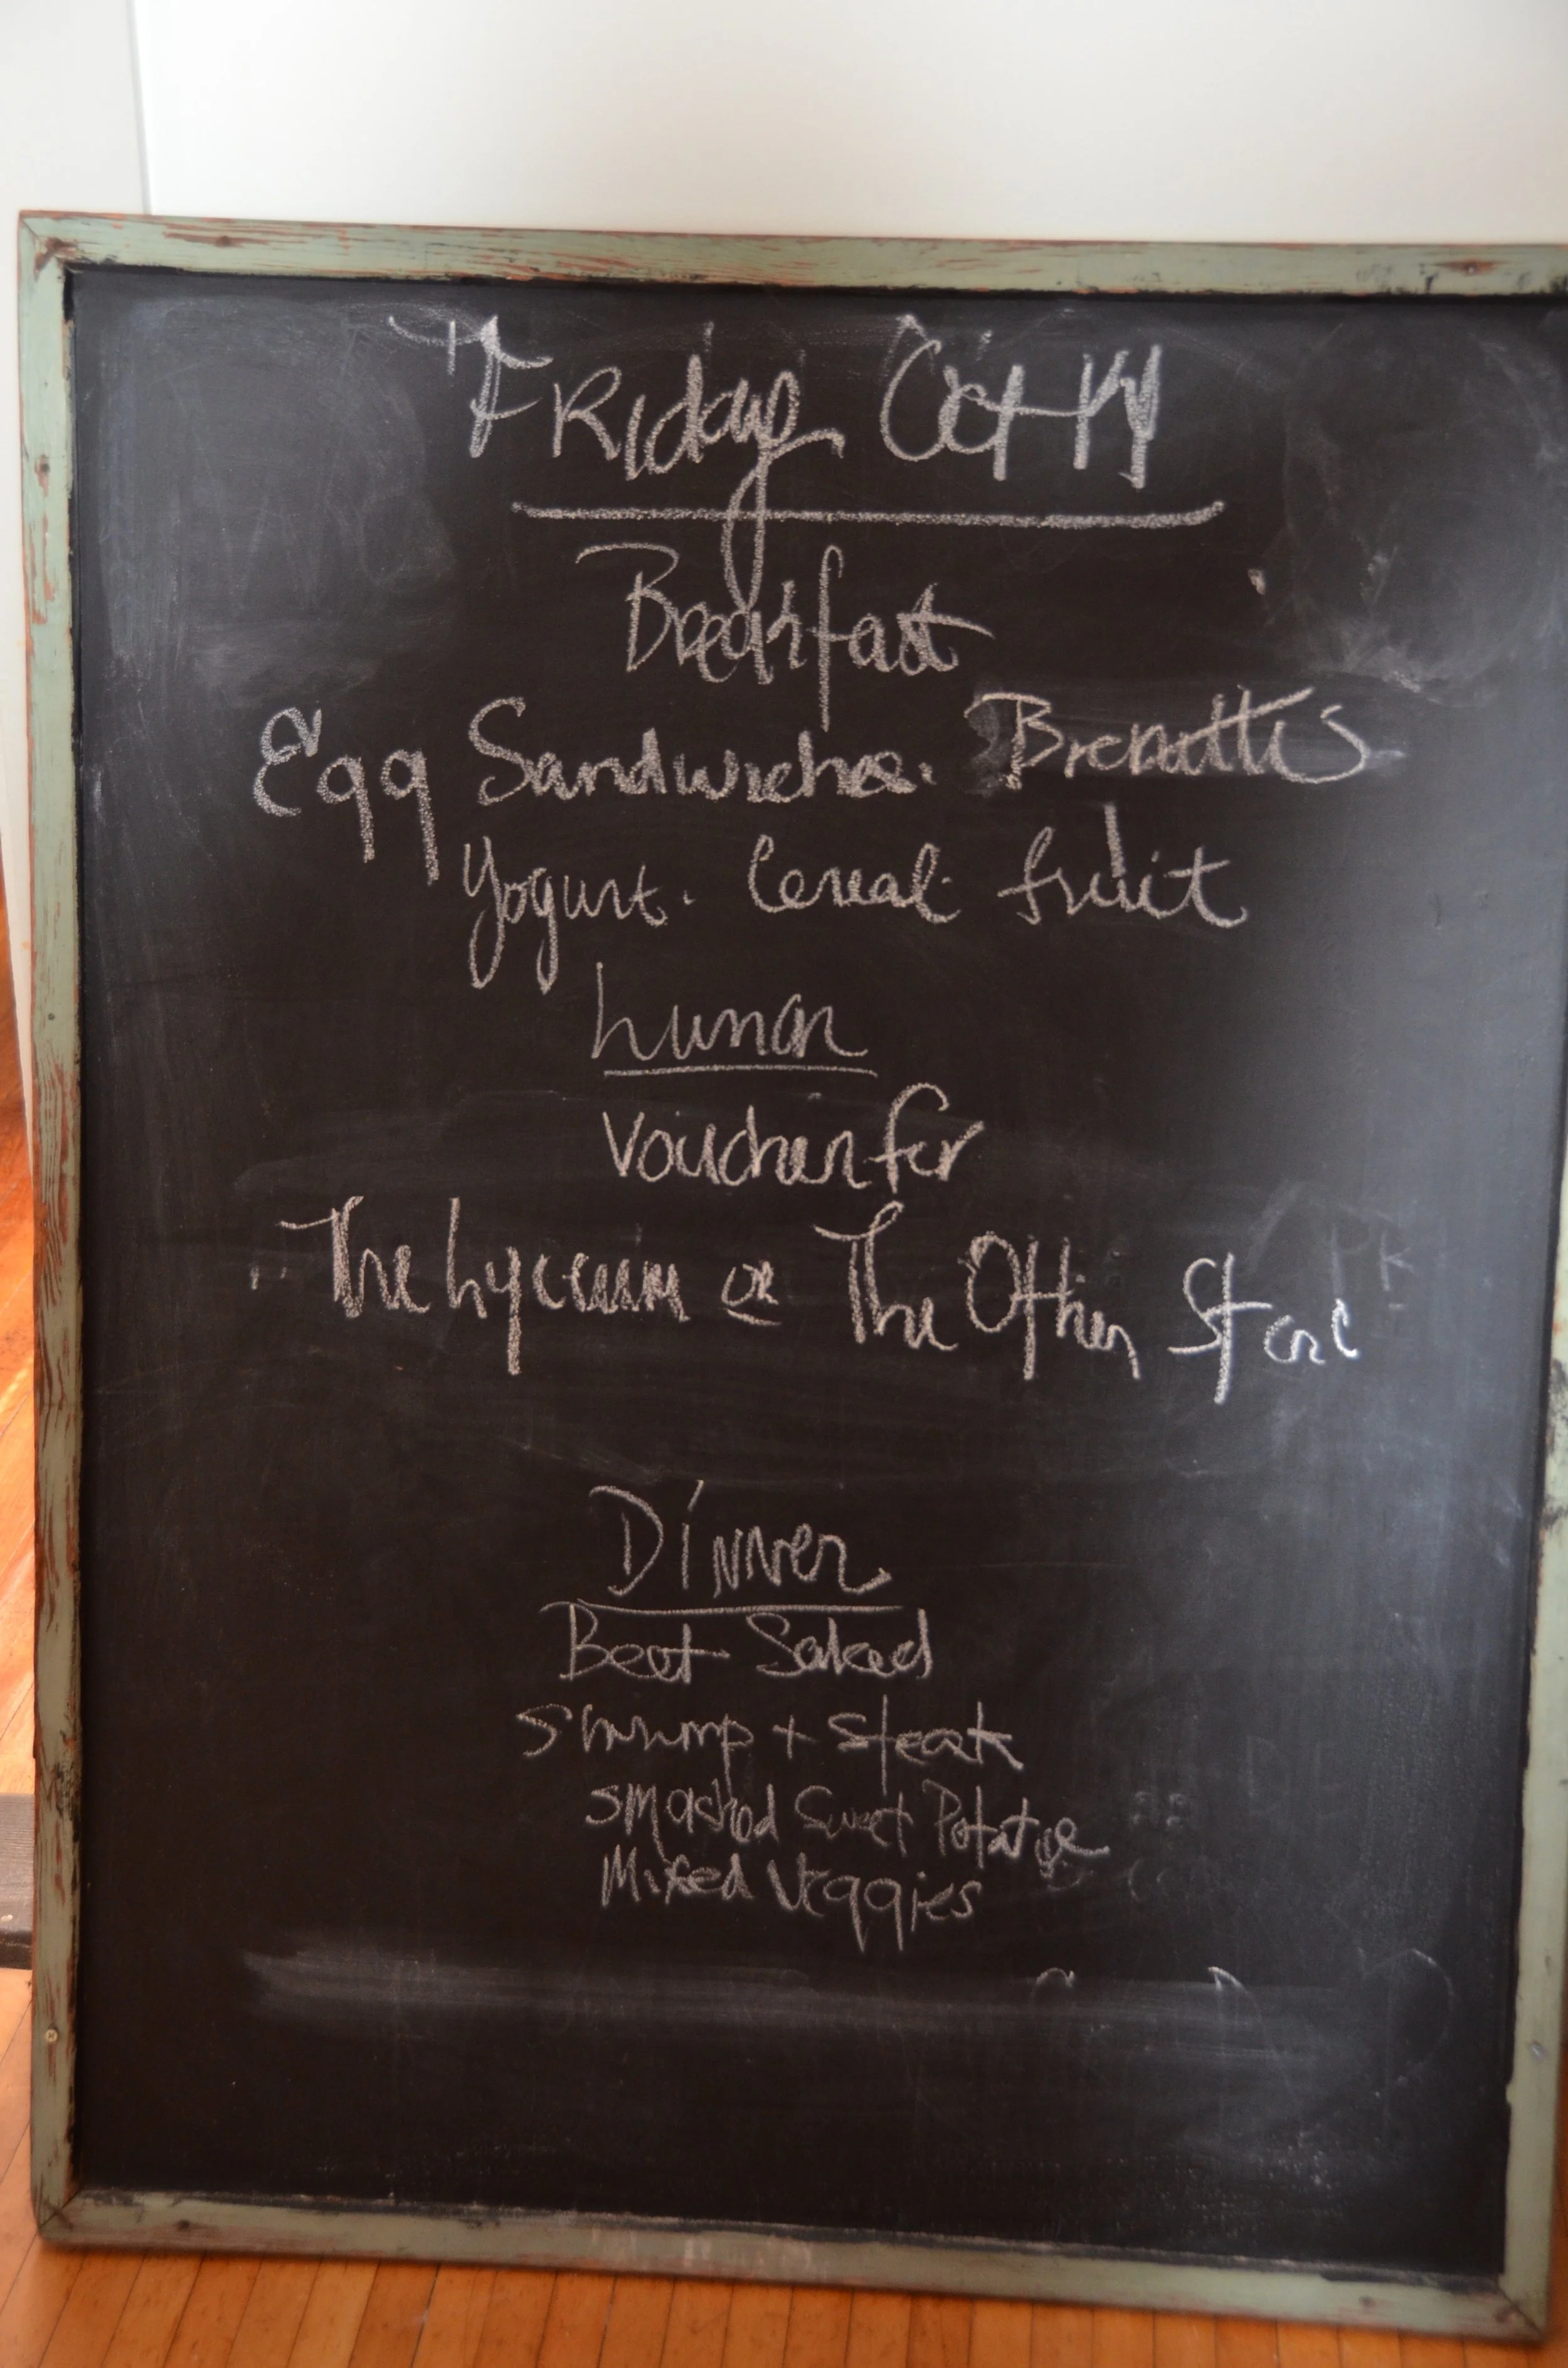 Friday Oct 14
Breakfast
Egg Sandwiches.
Yogurt. Cereal. fruit
Lunch
Voucher for
The Lyceum or The Other Store
Dinner
Beet Salad
Shrimp + Steak
Smashed Sweet Potatoe
Mixed Veggies